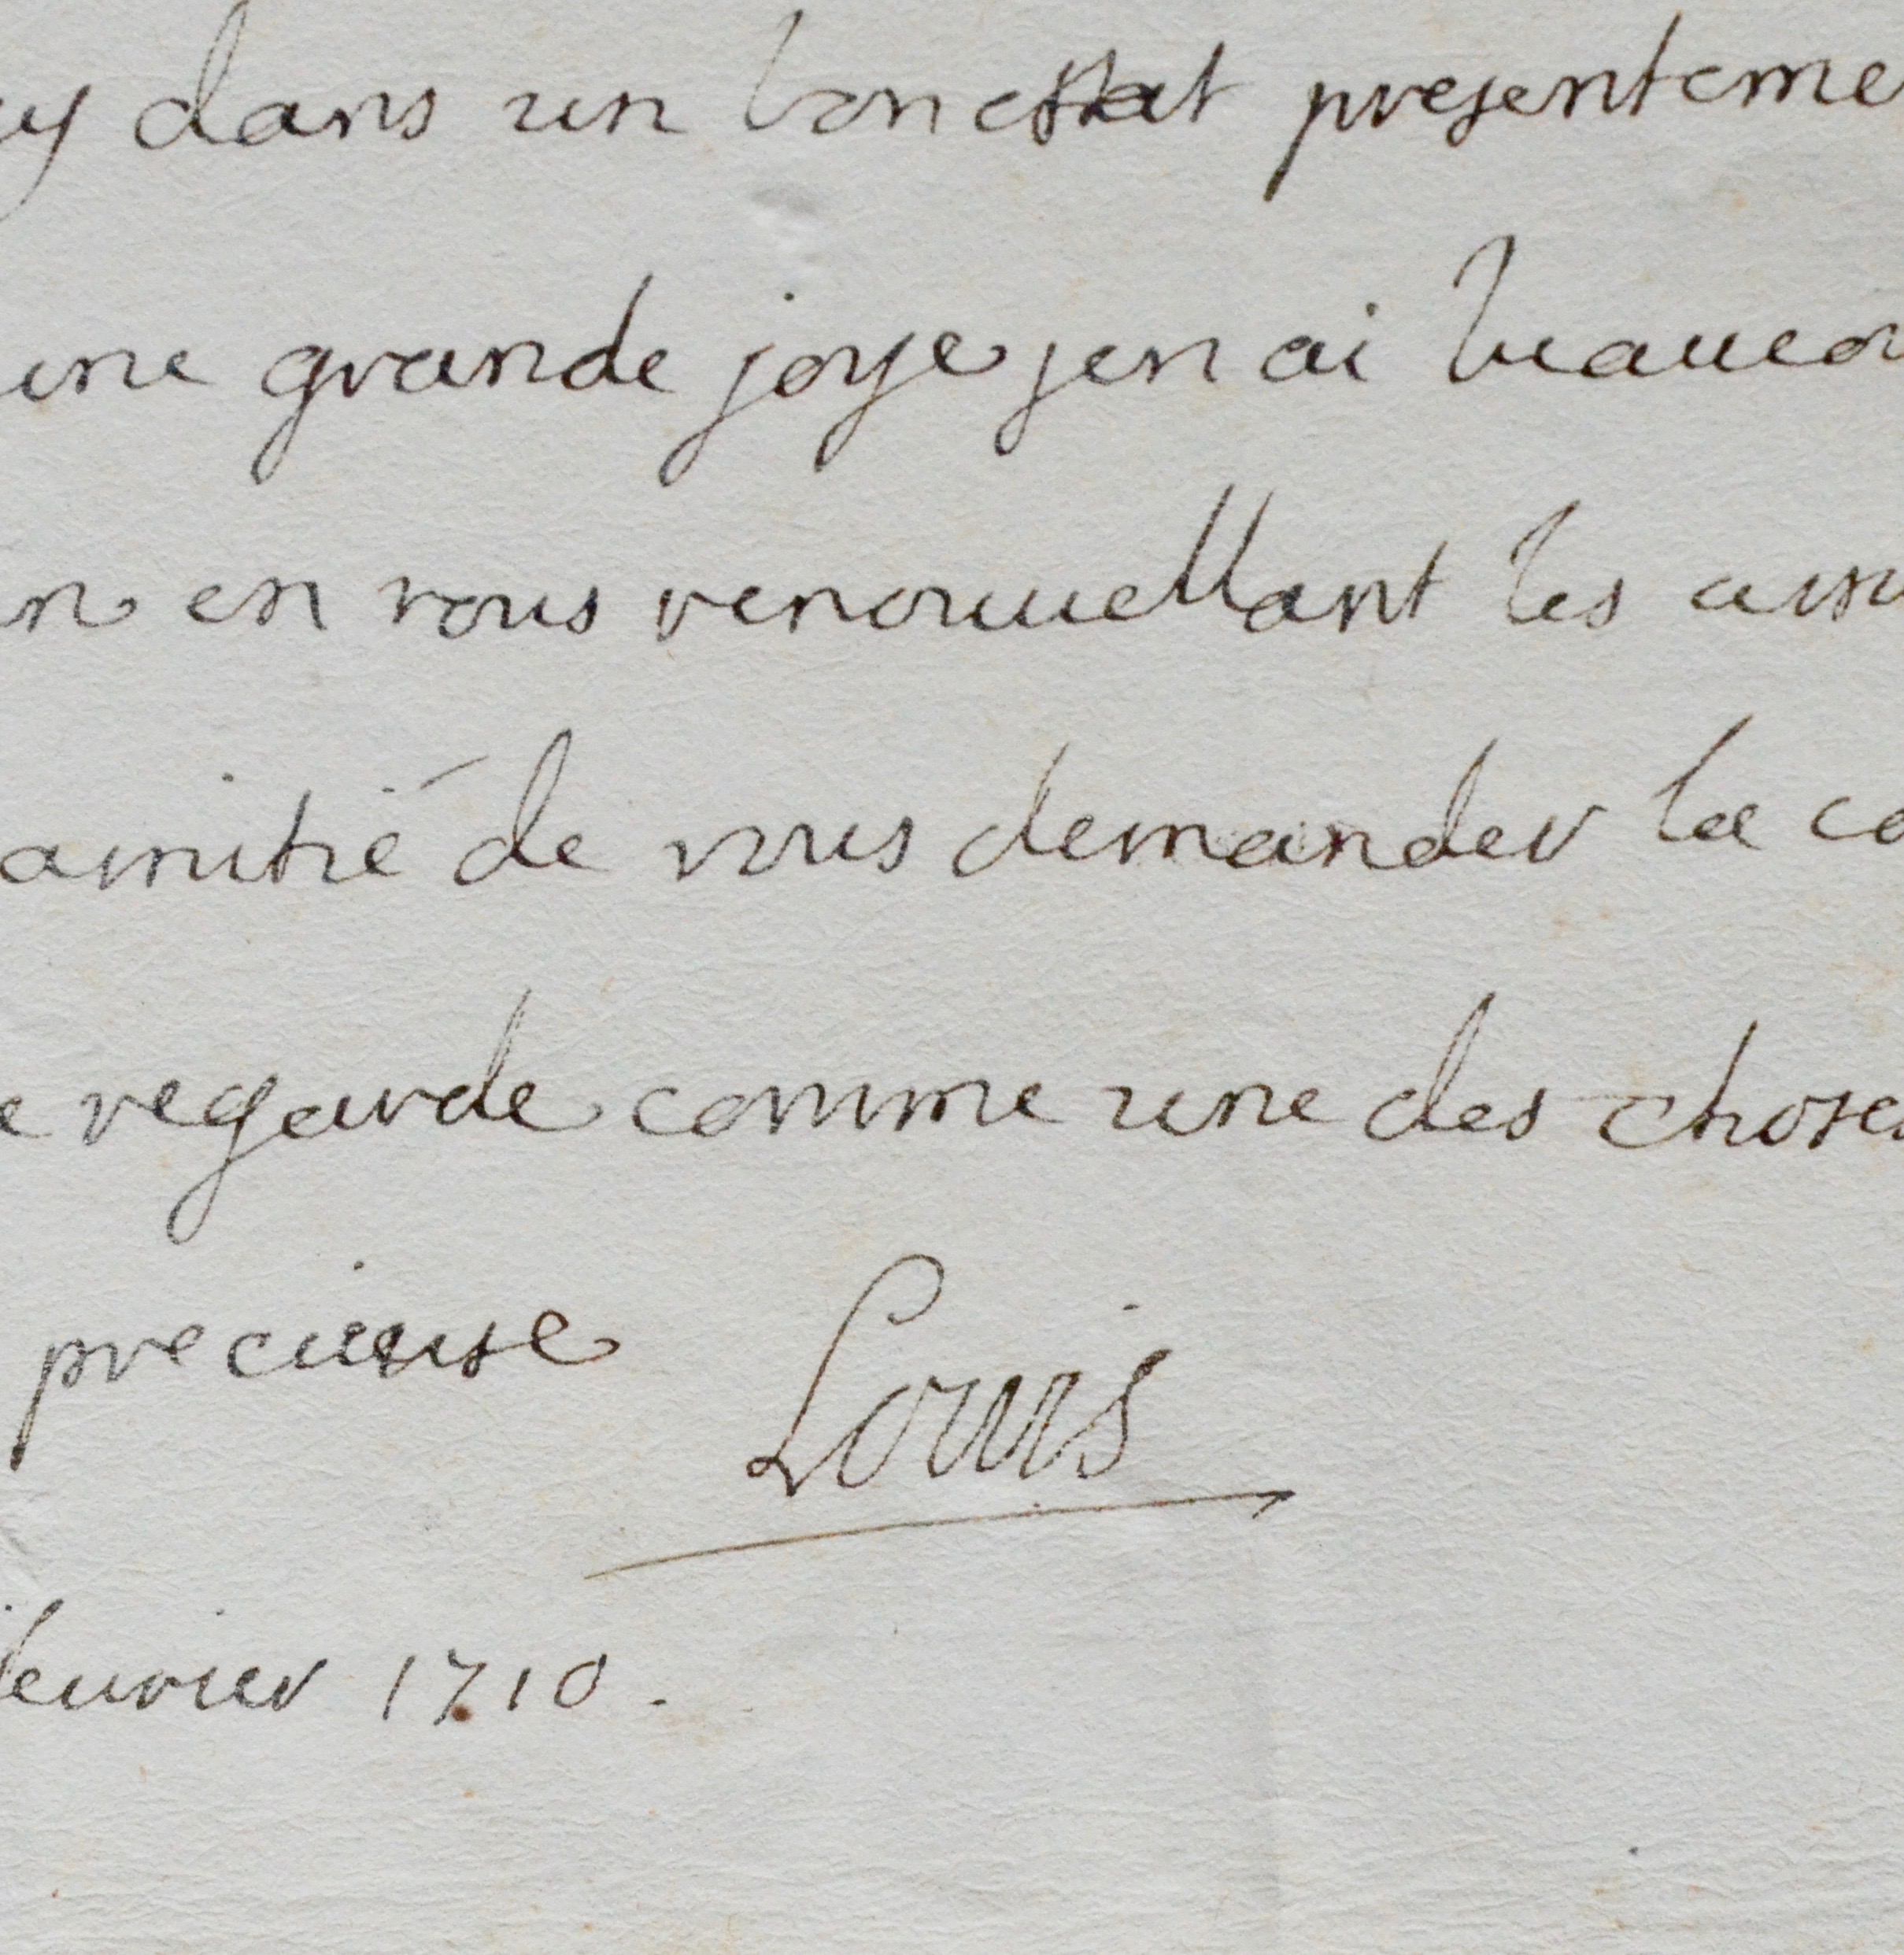 cy dans un bon estat presenteme
une grande joye jen ai beaucou
n en vous renouuellant les assu
amitié de vous demander la co
e regarde comme une des choses
precieuse Louis
feurier 1710.